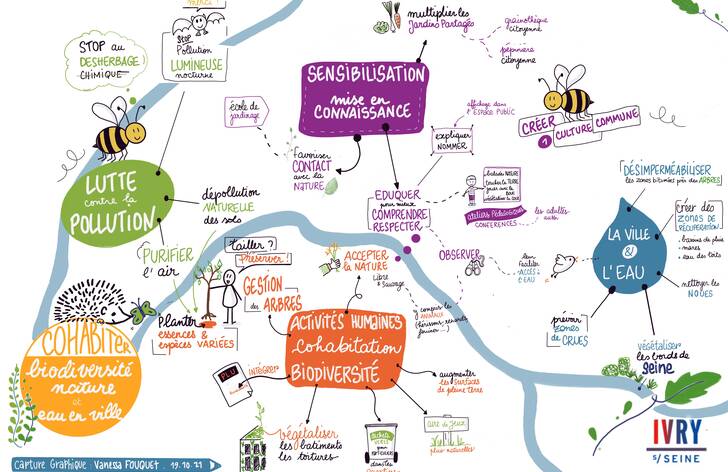 merci !
STOP au
DESHERBAGE
CHIMIQUE
STOP
Pollution
LUMINEUSE
nocturne
LUTTE
contre la
POLLUTION
dépollution
NATURELLE
des sols
PURIFIER
l'air
SENSIBILISATION
mise en
CONNAISSANCE
multiplier les
Jardins Partagés
grainothèque
citoyenne
pépinière
citoyenne
école de
jardinage
favoriser
CONTACT
avec la
NATURE
affichage dans
l'ESPACE PUBLIC
expliquer
NOMMER
EDUQUER
pour mieux
COMPRENDRE
RESPECTER
balades NATURE
Ateliers Pédagogiques
CONFERENCES
les adultes aussi
OBSERVER
CRÉER
1 CULTURE COMMUNE
DÉSIMPERMÉABILISER
les zones bitumées près des ARBRES
LA VILLE
&
L'EAU
créer des
ZONES de
RÉCUPÉRATION
bassins de pluie
mares
eau des toits
nettoyer les
NOUES
leur faciliter
l'ACCÈS à
L'EAU
prévoir
zones
de CRUES
végétaliser
les bords de
Seine
COHABITER
biodiversité
nature
et
eau en ville
Tailler ?
Préserver !
GESTION
des ARBRES
Planter
essences &
espèces VARIÉES
ACCEPTER
la NATURE
Libre & Sauvage
ACTIVITÉS HUMAINES
cohabitation
BIODIVERSITÉ
compris les
ANIMAUX
(hérissons, renards,
PLU
INTÉGRER
végétaliser
les batiments
les toitures
augmenter
les SURFACES
de pleine terre
aire de Jeux
plus naturelles
dans les
IVRY
s/SEINE
Capture Graphique : Vanessa FOUQUET . 19.10.21